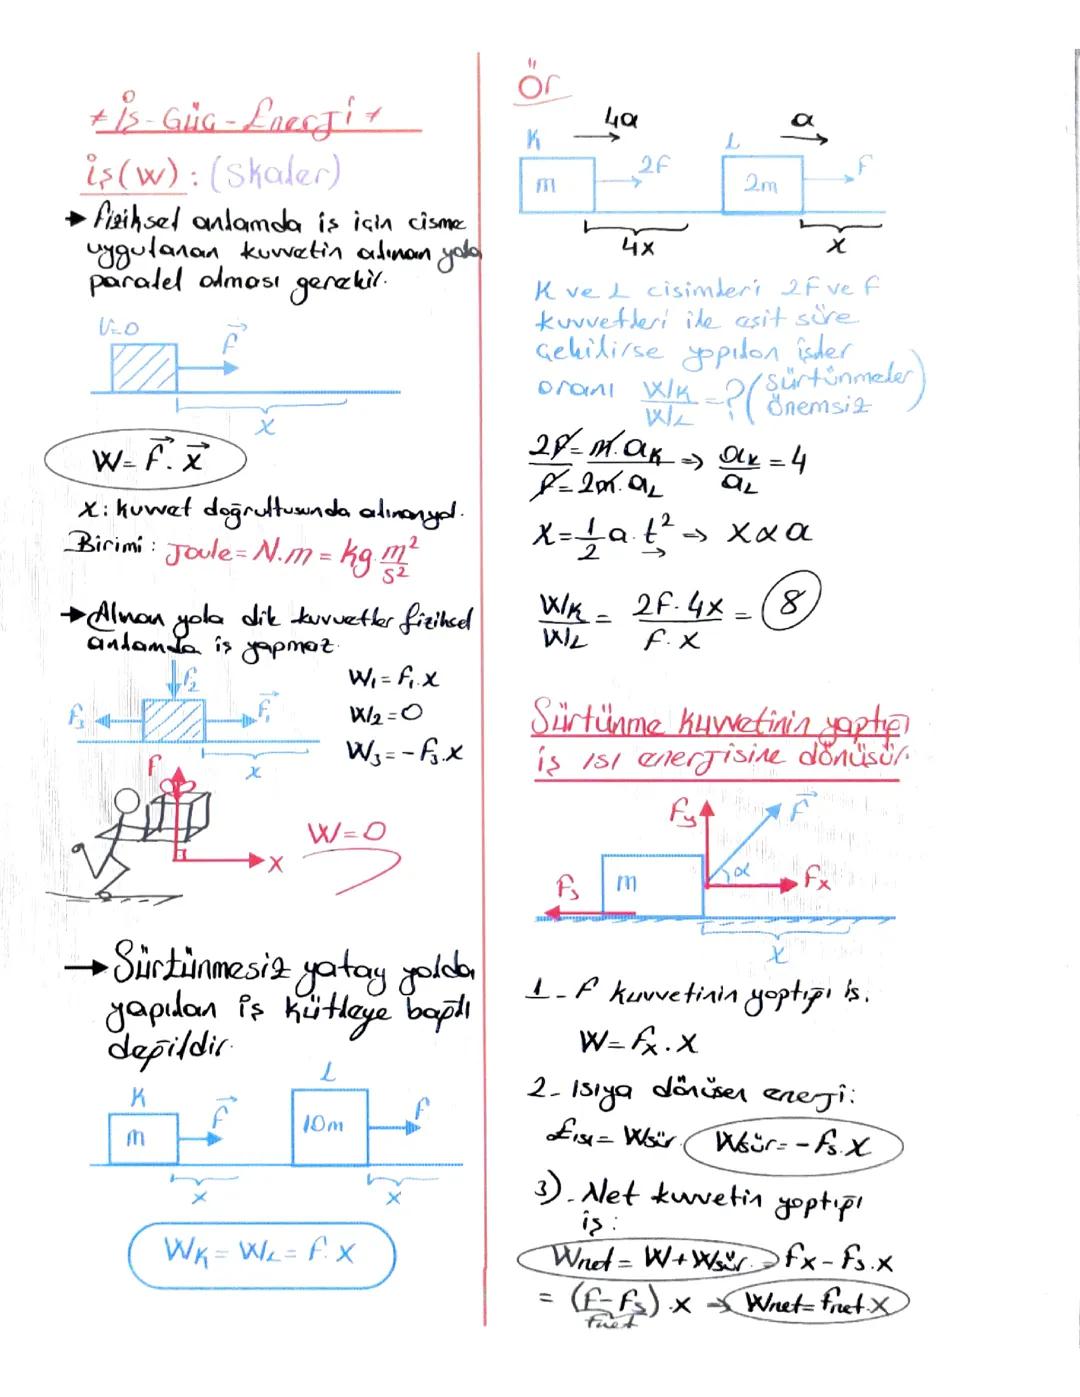 * İş - Güç - Enerji *
iş(w) : (Skaler)
→ fiziksel anlamda iş için cisme
uygulanan kuvvetin alınan yola
paralel olması gerekir.
V=0
F
x
W = F . x
x : kuvvet doğrultusunda alınan yol.
Birimi : Joule = N.m = kg. m²/s²
→ Alınan yola dik kuvvetler fiziksel
anlamda iş yapmaz.
F₂
F₃
F₁
x
W₁ = F₁.x
W₂ = 0
W₃ = -F₃.x
F
x
W=0
→ Sürtünmesiz yatay yolda
yapılan iş kütleye bağlı
değildir.
K
m
F
x
L
10m
F
x
WK = WL = F.x
Ör
K
4a
m
2F
4x
L
a
2m
F
x
K ve L cisimleri 2F ve F
kuvvetleri ile eşit süre
çekilirse yapılan işler
oranı WK/WL = ? (sürtünmeler önemsiz)
2F = m.aK
F = 2m.aL
⇒ aK/aL = 4
x = 1/2 a.t² → x α a
WK/WL = 2F.4x / F.x = 8
Sürtünme kuvvetinin yaptığı
iş ısı enerjisine dönüşür.
Fy
F
α
Fx
Fs
m
x
1 - F kuvvetinin yaptığı iş.
W = Fx . x
2 - Isıya dönüşen enerji:
Eısı = Wsür.
Wsür = - Fs.x
3) - Net kuvvetin yaptığı
iş :
Wnet = W + Wsür. = Fx - Fs.x
= (F - Fs) .x → Wnet = Fnet.x
Fnet